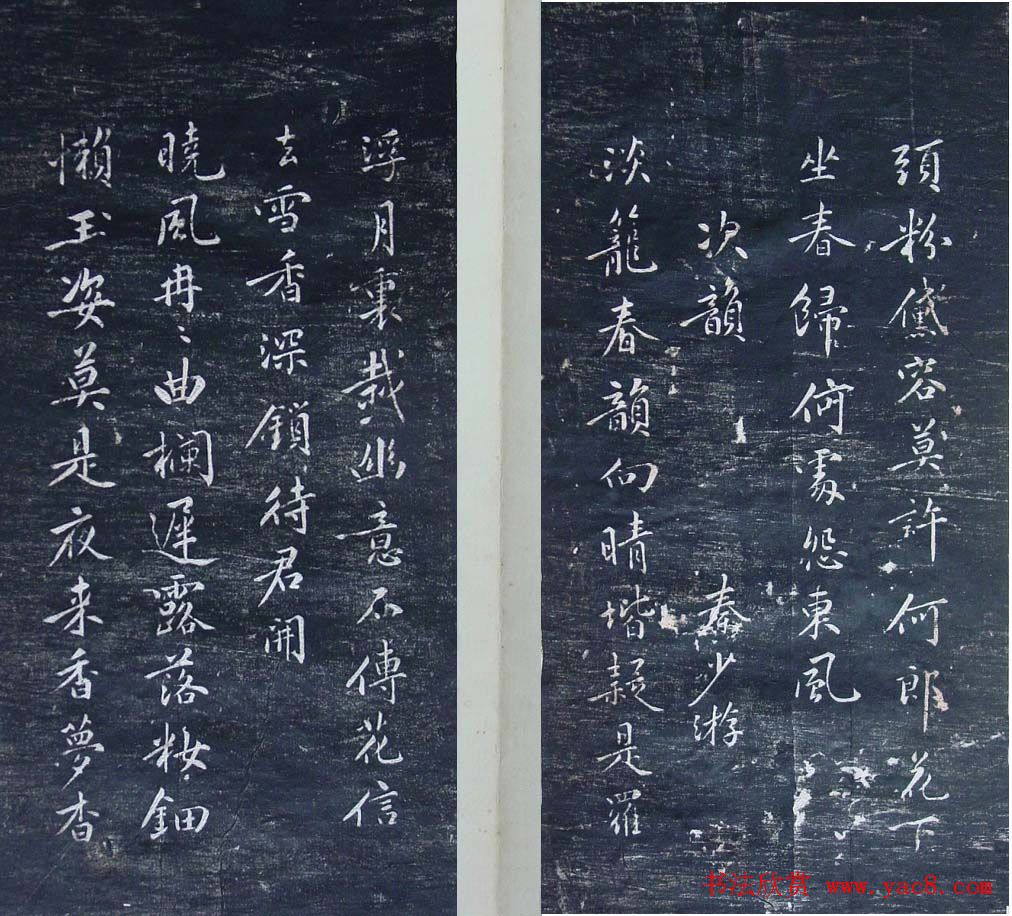 頭粉黛容莫許何郎花下
坐春歸何處怨東風
次韻 秦少游
淡籠春韻向晴堦疑是羅
浮月裏栽幽意不傳花信
去雪香深鎖待君開
曉風冉〻曲欄遲露落籹鈿
懶玉姿莫是夜来香夢杳
书法欣赏 www.yac8.com